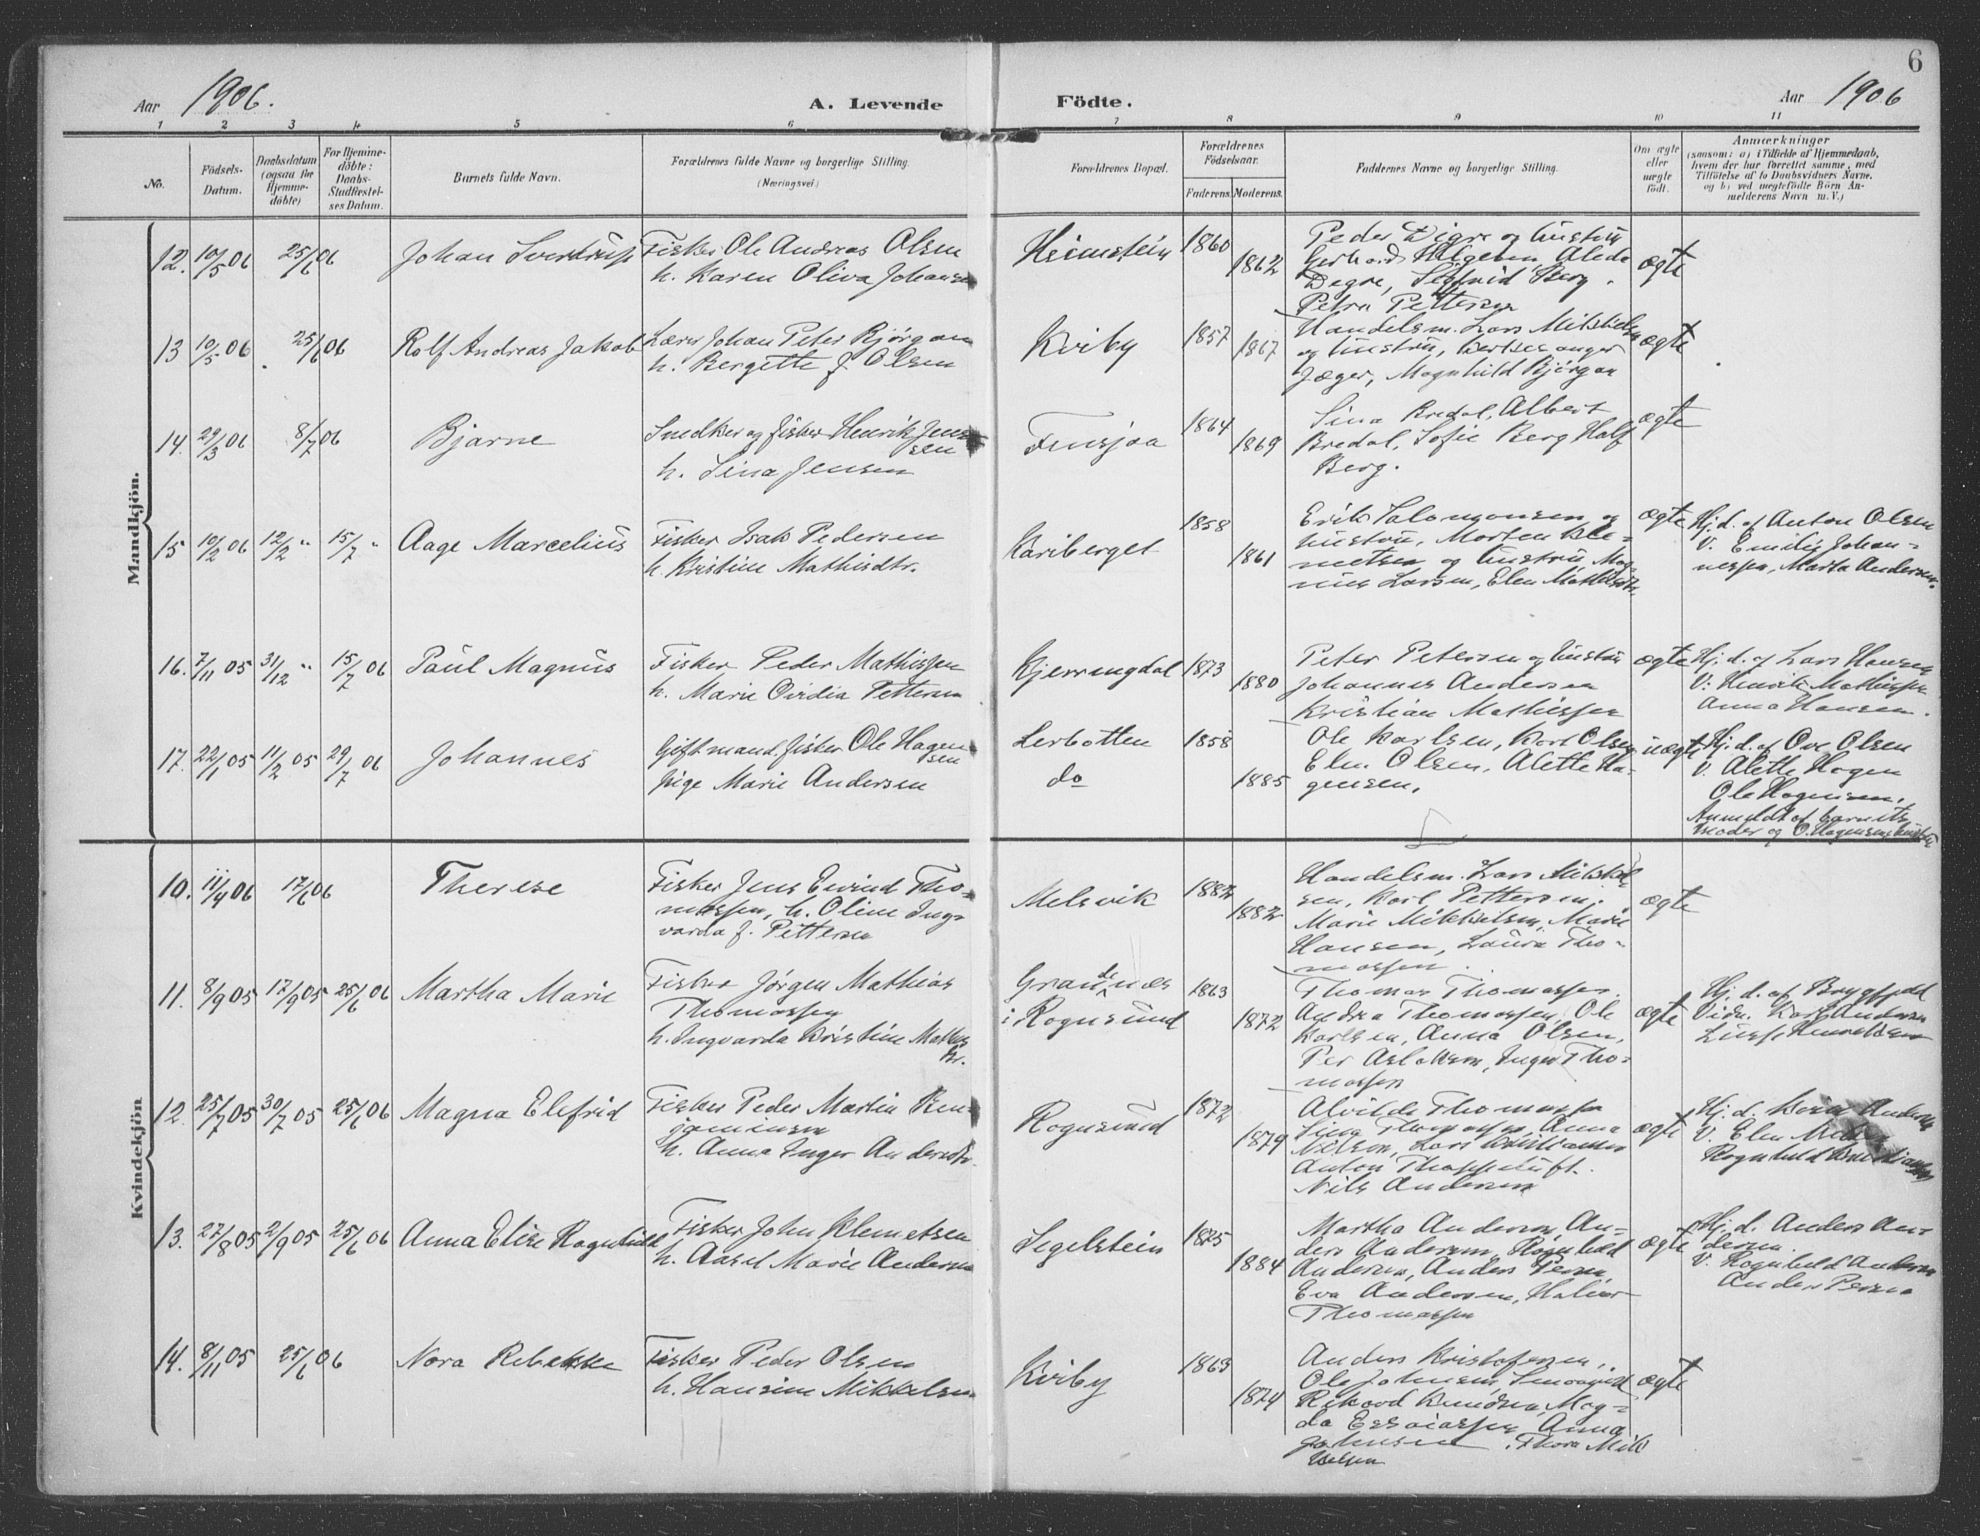 6
Aar 1906.
A. Levende Födte.
Aar 1906
1 2 3 4 5 6 7 8 9 10 11
No.
Födsels-
Datum.
Daabsdatum
(ogsaa for
Hjemme-
döbte)
For Hjemme-
döbte:
Daabs-
Stadfæstel-
ses Datum.
Barnets fulde Navn.
Forældrenes fulde Navne og borgerlige Stilling.
(Næringsvei)
Forældrenes Bopæl.
Forældrenes
Födselsaar.
Faderens. Moderens.
Faddernes Navne og borgerlige Stilling.
Om ægte
eller
uægte
födt.
Anmærkninger
(saasom: a) i Tilfælde af Hjemmedaab,
hvem der har forrettet samme, med
Tilföielse af to Daabsvidners Navne.
og b) ved uægtefödte Börn An-
melderens Navn m. V.)
Mandkjön.
12. 10/5 06 25/6 06 Johan Sverdrup
Fisker Ole Andreas Olsen
h. Karen Oliva Johans
Heimstein 1860
1862
Peder Digre og hustru
Gerhard Alida
Degre, Sigfrid Berg.
Petra Pettersen
ægte
13 10/5 06 25/6 06 Rolf Andreas Jakob
Lærer Johan Peter Bjørgan
h. Bergette f. Olsen
Kviby 1857
1867
Handelsm. Lars Mikkelsen
og hustru,
Jæger, Magnhild Bjørgan
ægte
14. 29/3 06 8/7 06 Bjarne
Snedker og fisker Henrik Jen
sen
h. Lina Jensen
1864
1869
Lina Bredal, Albert
Bredal, Sofie Berg Half
Berg.
ægte
15 10/2 06 12/2 " 15/7 " Aage Marcelius
Fisker Isak Pedersen
h. Kristine Mathisdtr.
Kariberget 1858
1861
Erik Salomonsen og
hustru, Morten Kle-
metsen og hustru, Mag-
nus Larsen, Elen Mathisdtr.
ægte
Hj. d. af Anton Olsen
V. Emilie Johan-
nessen, Marta Andersen.
16. 7/11 05 31/12 " 15/7 06 Paul Magnus
Fisker Peder Mathissen
h. Marie Ovidia Pettersen
Kjerringdal 1873
1880
Peter Petersen og hustru
Johannes Andersen
Kristian Mathissen
ægte
Hj. d. af Lars Hansen
V: Henrik Mathissen
Anna Hansen.
17. 22/1 05 11/2 05 29/7 06 Johannes
Gift mand, fisker Ole Hagen
sen
Pige Marie Andersen
Lerbotten
do
1858
1885
Ole Karlsen, Karl Olsen
Elen Olsen, Alette Ha-
gensen.
uægte
Hj. d. af Ove Olsen
V. Alette Hagen
Ole Hagensen.
Anmeldt af barnets
moder og O. Hagensens hustru
Kvindekjön
10. 11/4 06 17/6 06 Therese
Fisker Jens Eivind Tho-
massen, h. Oline Ing-
varda f. Pettersen
Melsvik 1882
1882
Handelsm. Lars Mikkel
sen, Karl Pettersen,
Marie Mikkelsen, Marie
Hansen, Laura Tho-
massen.
ægte
11. 8/9 05 17/9 05 25/6 06 Martha Marie
Fisker Jørgen Mathias
Thomassen
h. Ingvarda Kristine Mathis
dtr.
Grandenæs
i Rognsund
1863
1872
Thomas Thomassen.
Andrea Thomassen, Ole
Karlsen, Anna Olsen,
Per Aslaksen, Inger Tho-
massen
ægte
Hj. d. af
Vidn. Karl Andersen
12. 25/7 05 30/7 05 25/6 06 Magna Elefrid
Fisker Peder Martin Ben-
jaminsen
h. Anna Inger Andersdtr.
Rognsund 1872
1879
Alvilde Thomassen
Lina Thomassen, Anna
Nilsen, Lars Kristiansen
Anton Thomassen
Nils Andersen
ægte
Hj. d. Andersen
V. Elen
Rognhild Kristiansen
13. 27/8 05 2/9 05 25/6 06 Anna Elise Ragnhild
Fisker John Klemetsen
h. Aasel Marie Andersen
Segelstein 1875
1884
Martha Andersen, An-
ders Andersen, Ragnhild
Andersen, Anders Persen
Eva Andersen, Halvor
Thomassen
ægte
Hj. d. Anders An-
dersen.
V. Ragnhild Andersen
Anders Persen
14. 8/11 05 25/6 06 Nora Rebekka
Fisker Peder Olsen
h. Hansine Mikkelsen
Kviby 1863
1874
Anders Kristofersen,
Ole Johnsen,
Rikard Knudsen, Mag-
da Essaiassen, Anna
Johnsen, Thora Mik
kelsen
ægte